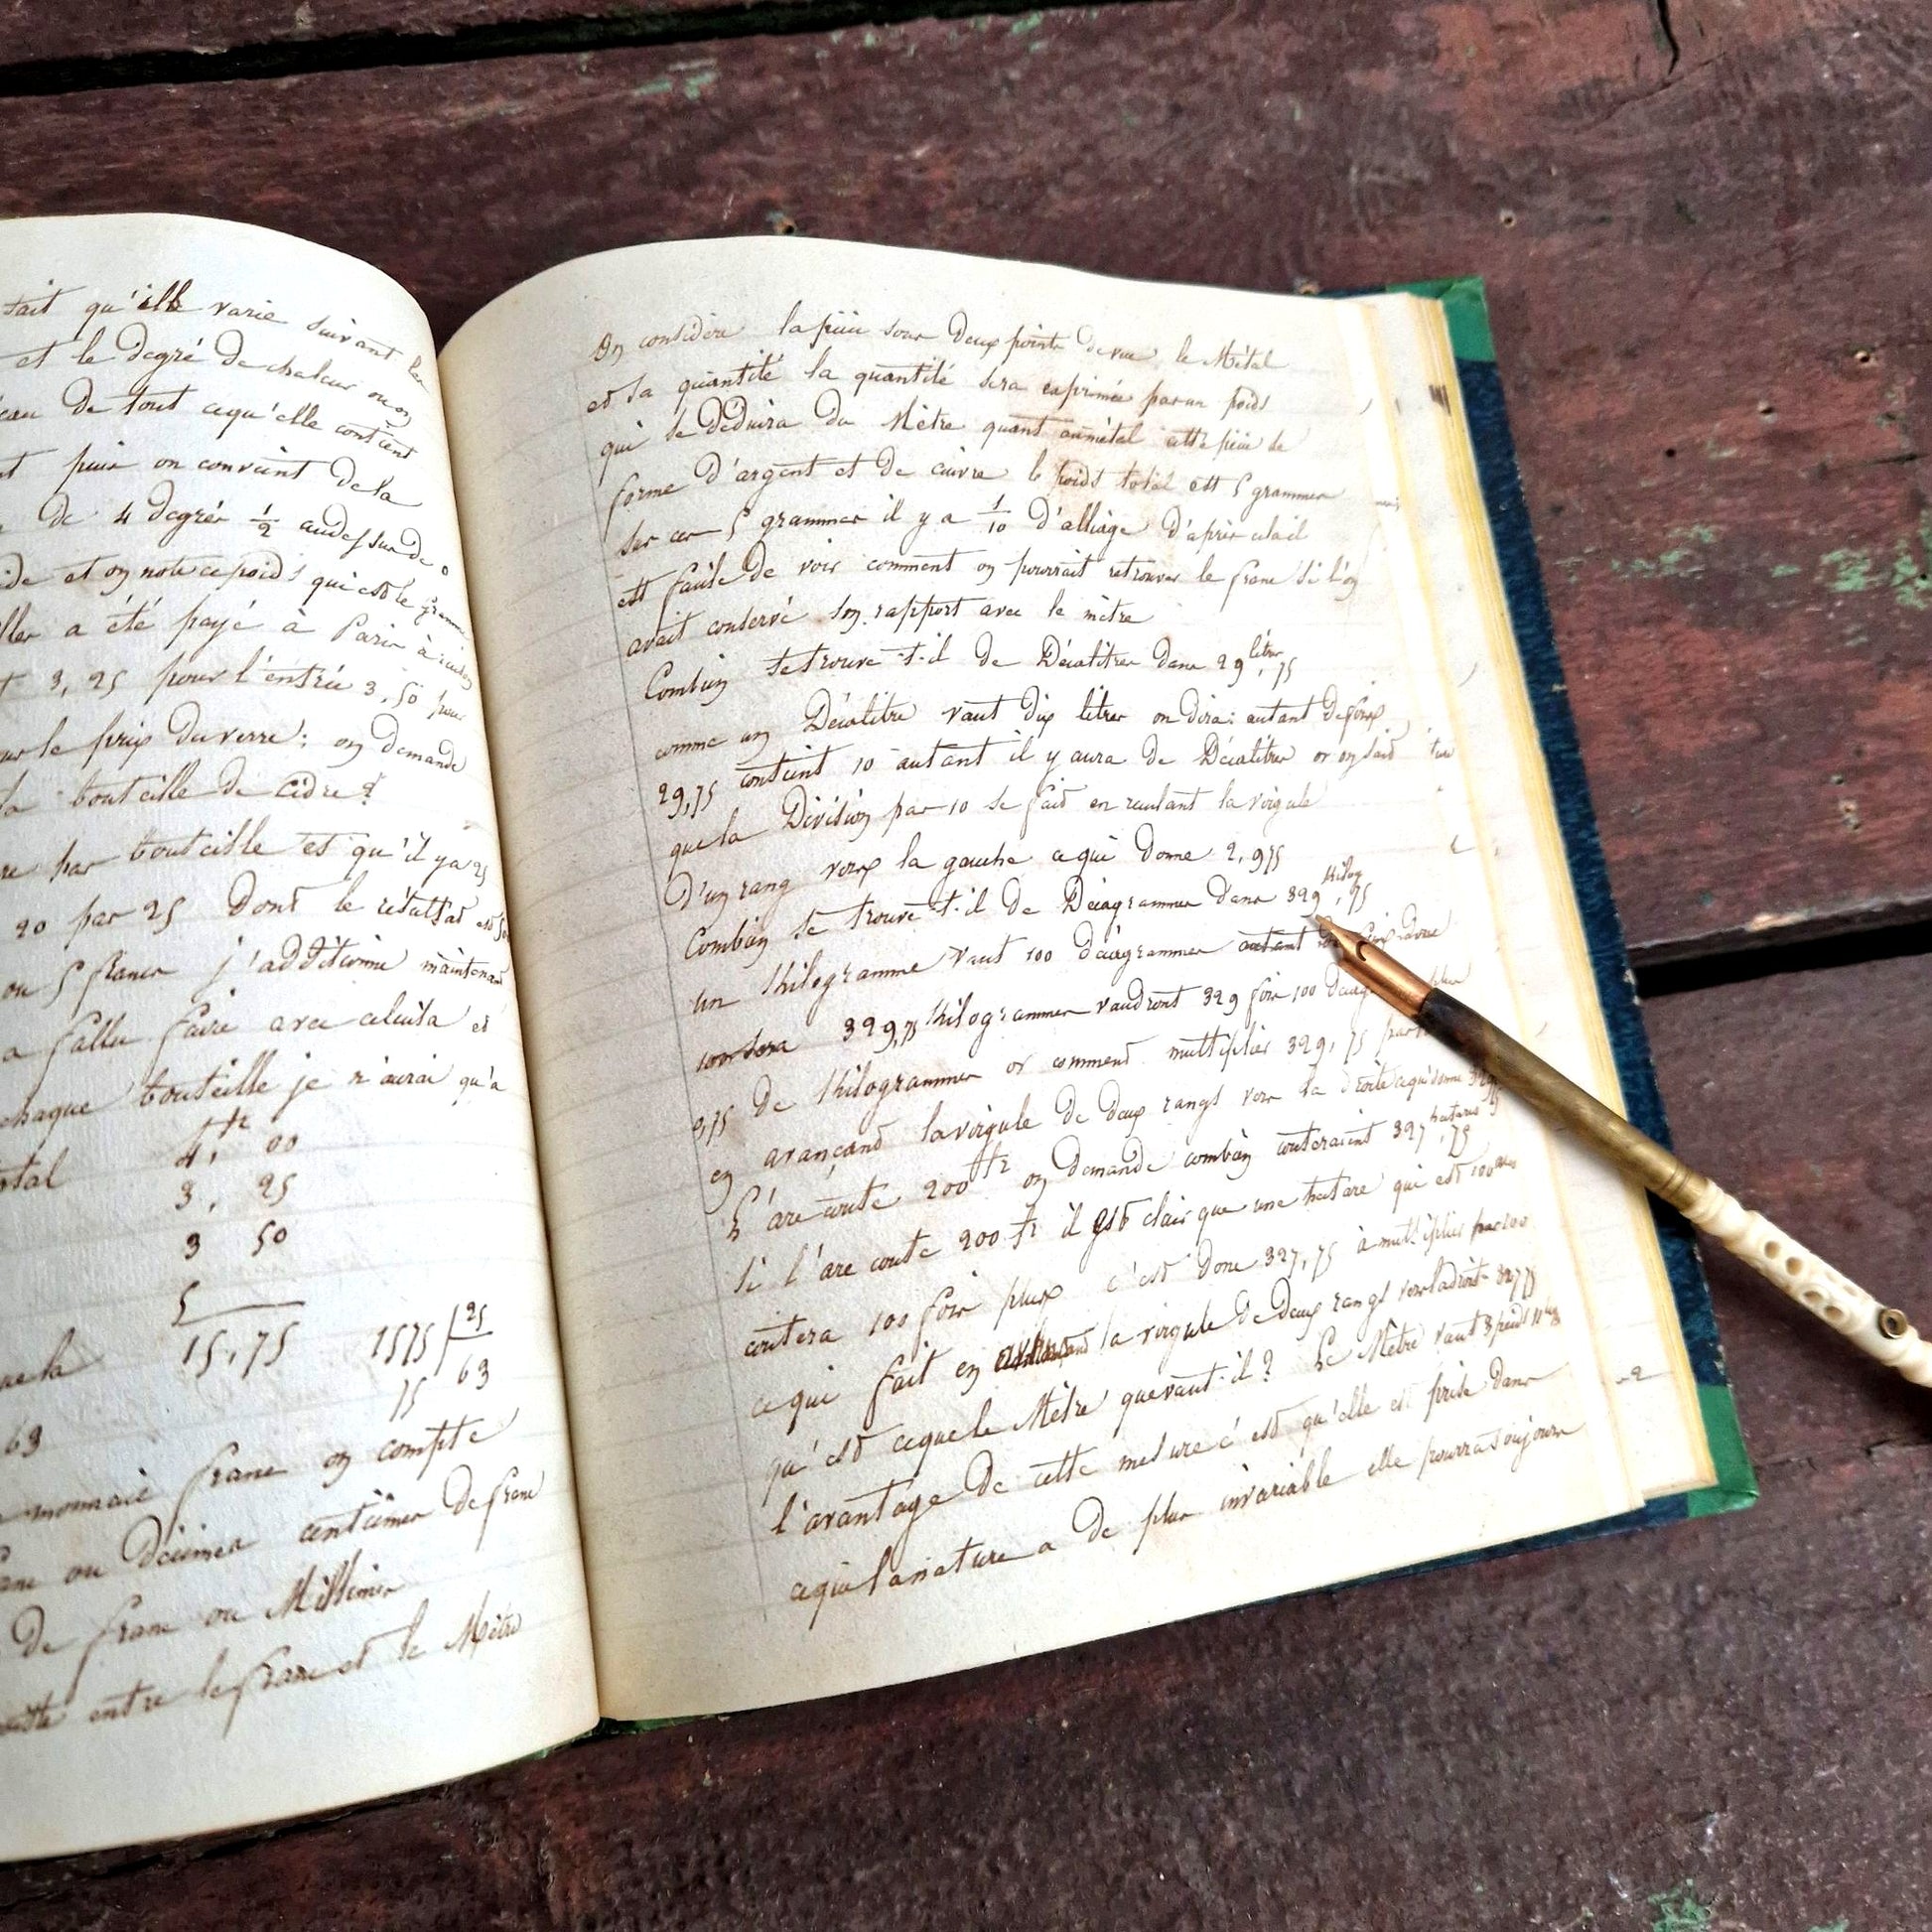 fait qu'elle varie suivant les
et le degré de chaleur ou on
de tout cequ'elle contient
puis on convient dela
de 4 degrés 1/2 audessus de 0
et on note ce poids qui est le gramme
a été payé à Paris à
3,25 pour l'entrée 3,50 pour
le prix du verre; on demande
la bouteille de Cidre?
par bouteille et qu'il y a 25
20 par 25 dont le résultat est
ou 5 francs j'additionne maintenant
a fallu faire avec celuila et
chaque bouteille je n'aurai qu'a
total 4,fr 00
3, 25
3 50
5
15,75 1575 25
75 63
63
monnaie franc on compte
ou Décimes centimes de franc
De franc ou Millimes
entre le franc et le Mètre
On considère la pièce sous Deux points de vue le Métal
et sa quantité la quantité sera exprimée par un poids
qui se Déduira du Mètre quant aumétal cette pièce se
forme D'argent et de cuivre le poids total est 5 grammes
sur ces 5 grammes il y a 1/10 D'alliage D'après cela il
est facile de voir comment on pourrait retrouver le franc si l'on
avait conservé son rapport avec le mètre
Combien se trouve-t-il de Décalitres dans 29litres,75
comme un Décalitre vaut dix litres on dira: autant de foix
29,75 contient 10 autant il y aura de Décalitres or on sait
que la Division par 10 se fait en reculant la virgule
D'un rang verx la gauche cequi donne 2,975
Combien se trouve-t-il de Décagrammes dans 329Kilog,75
un Kilogramme vaut 100 décagrammes autant
sera 329,75 Kilogrammes vaudront 329 fois 100 plus
0,75 de Kilogrammes or comment multiplier 329,75 par
en avançant la virgule de deux rangs vers la droite cequi donne
L'are coute 200fr on demande combien couteraient 327hectares,75
si l'are coute 200 fr il est clair que une hectare qui est 100 ares
coutera 100 fois plux c'est donc 327,75 à multiplier par 100
ce qui fait en la virgule de deux rangs vers la droite 32775
qu'est ceque le Mètre que vaut-il? Le Mètre vaut 3 pieds 11
l'avantage de cette mesure c'est qu'elle est prise dans
ceque la nature a de plus invariable elle pourra toujours